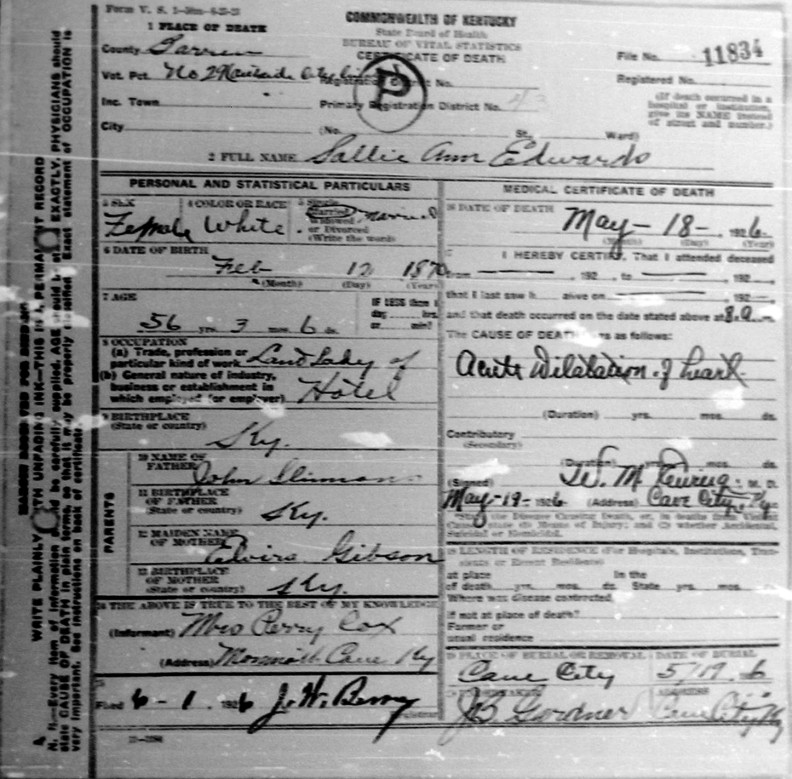 Form V. S.
COMMONWEALTH OF KENTUCKY
State Board of Health
BUREAU OF VITAL STATISTICS
CERTIFICATE OF DEATH
1 PLACE OF DEATH
County
File No. 11834
Vot. Pct. No 2
Registration District No.
Registered No.
P
Inc. Town
Primary Registration District No.
(If death occurred in a
hospital or institution,
give its NAME instead
of street and number.)
City
(No. St. Ward)
2 FULL NAME Sallie Ann Edwards
PERSONAL AND STATISTICAL PARTICULARS
3 SEX
4 COLOR OR RACE
5 Single
Married
Widowed
or Divorced
(Write the word)
Female White married
6 DATE OF BIRTH
Feb 12 1870
(Month) (Day) (Year)
7 AGE
IF LESS than 1
day hrs.
or min?
56 yrs. 3 mos. 6 ds.
8 OCCUPATION
(a) Trade, profession or
particular kind of work Land Lady of
(b) General nature of industry,
business or establishment in
which employed (or employer) Hotel
9 BIRTHPLACE
(State or country)
Ky.
PARENTS
10 NAME OF
FATHER John
11 BIRTHPLACE
OF FATHER
(State or country) Ky.
12 MAIDEN NAME
OF MOTHER Elvira Gibson
13 BIRTHPLACE
OF MOTHER
(State or country) Ky.
14 THE ABOVE IS TRUE TO THE BEST OF MY KNOWLEDGE
(Informant) Mrs Perry Cox
(Address) Mammoth Cave Ky
15
Filed 6-1. 1926 J. W. Berry
Registrar
MEDICAL CERTIFICATE OF DEATH
16 DATE OF DEATH
May-18-, 1926.
(Month) (Day) (Year)
I HEREBY CERTIFY, That I attended deceased
from 192 , to 192 ,
that I last saw h alive on 192
and that death occurred on the date stated above at m.
The CAUSE OF DEATH was as follows:
Acute Dilatation of heart
(Duration) yrs. mos. ds.
Contributory
(Secondary)
(Duration) yrs. mos. ds.
(Signed) W. M. M. D.
May-19-1926 (Address) Cave City, Ky
State the Disease Causing Death, or, in deaths from Violent
Causes, state (1) Means of Injury; and (2) whether Accidental,
Suicidal or Homicidal.
18 LENGTH OF RESIDENCE (For Hospitals, Institutions, Transients
or Recent Residents)
at place In the
of death yrs. mos. ds. State yrs. mos. ds.
Where was disease contracted,
If not at place of death?
Former or
usual residence
19 PLACE OF BURIAL OR REMOVAL
DATE OF BURIAL
Cave City 5/19 6
ADDRESS
J B Gardner Cave City Ky
WRITE PLAINLY WITH UNFADING INK—THIS IS A PERMANENT RECORD
N. B.—Every item of information should be carefully supplied. AGE should be stated EXACTLY. PHYSICIANS should
state CAUSE OF DEATH in plain terms, so that it may be properly classified. Exact statement of OCCUPATION is
very important. See instructions on back of certificate.